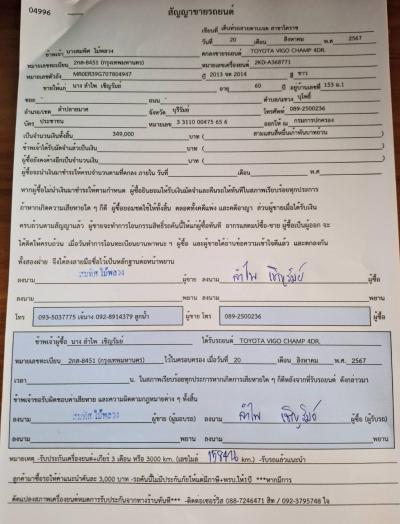 04996
สัญญาขายรถยนต์
เขียนที่ เต็นท์รถสวยตามเจต สาขาโคราช
วันที่ 20 เดือน สิงหาคม พ.ศ. 2567
ข้าพเจ้า นางสมทิศ ไม้หลวง ตกลงขายรถยนต์ TOYOTA VIGO CHAMP 4DR.
หมายเลขทะเบียน 2กล-8451 (กรุงเทพมหานคร) หมายเลขเครื่องยนต์ 2KD-A368771
หมายเลขตัวถัง MR0ER39G707804947 ปี 2013 จด 2014 สี ขาว
ขายให้แก่ นาง ลำไพ เชิญรัมย์ อายุ 60 ปี อยู่บ้านเลขที่ 153 ม.1
ซอย ถนน ตำบล/แขวง บุโพธิ์
อำเภอ/เขต ลำปลายมาศ จังหวัด บุรีรัมย์ โทรศัพท์ 089-2500236
บัตร ประชาชน หมายเลข 3 3110 00475 65 6 ออกให้ ณ กรมการปกครอง
เป็นจำนวนเงินทั้งสิ้น 349,000 บาท ( สามแสนสี่หมื่นเก้าพันบาทถ้วน )
ข้าพเจ้าได้รับมัดจำแล้วเป็นเงิน บาท ( )
ผู้ซื้อยังคงค้างอีกเป็นจำนวนเงิน บาท ( )
ผู้ซื้อจะนำเงินมาชำระให้ครบถ้วนตามที่ตกลง ภายใน วันที่ เดือน พ.ศ.
หากผู้ซื้อไม่นำเงินมาชำระให้ตามกำหนด ผู้ซื้อยินยอมให้ริบเงินมัดจำและคืนรถให้ทันทีในสภาพเรียบร้อยทุกประการ
ถ้าหากเกิดความเสียหายใด ๆ ก็ดี ผู้ซื้อยอมชดใช้ให้ทั้งสิ้น ตลอดทั้งคดีแพ่ง และคดีอาญา ส่วนผู้ขายเมื่อได้รับเงิน
ครบถ้วนตามสัญญาแล้ว ผู้ขายจะทำการโอนกรรมสิทธิ์รถคันนี้ให้แก่ผู้ซื้อทันที อากรแสตมป์ซื้อ-ขาย ผู้ซื้อเป็นผู้ออก จะ
ได้คิดให้ครบถ้วน เมื่อวันทำการโอนทะเบียนยานพาหนะ ฯ ผู้ซื้อ และผู้ขายได้อ่านข้อความเข้าใจดีแล้ว และตกลงกัน
ทั้งสองฝ่าย จึงได้ลงลายมือชื่อไว้เป็นหลักฐานต่อหน้าพยาน
ลงนาม สมทิศ ไม้หลวง ผู้ขาย ลงนาม ลำไพ เชิญรัมย์ ผู้ซื้อ
ลงนาม พยาน ลงนาม พยาน
โทร 093-5037775 เจ้นาง 092-8914379 ลูกน้ำ ผู้ขาย โทร 089-2500236 ผู้ซื้อ
ข้าพเจ้าผู้ซื้อ นาง ลำไพ เชิญรัมย์ ได้รับรถยนต์ TOYOTA VIGO CHAMP 4DR.
หมายเลขทะเบียน 2กล-8451 (กรุงเทพมหานคร) ไว้ในครอบครอง เมื่อวันที่ 20 เดือน สิงหาคม พ.ศ. 2567
เวลา น. ในสภาพเรียบร้อยทุกประการหากเกิดการเสียหายใด ๆ ก็ดีหลังจากที่รับรถยนต์ ดังกล่าวมา
ข้าพเจ้าขอรับผิดชอบค่าเสียหาย และความผิดตามกฎหมายต่าง ๆ ทั้งสิ้น
ลงนาม สมทิศ ไม้หลวง ผู้ขาย (ผู้มอบรถ) ลงนาม ลำไพ เชิญรัมย์ ผู้ซื้อ (ผู้รับรถ)
ลงนาม พยาน ลงนาม พยาน
หมายเหตุ -รับประกันเครื่องยนต์+เกียร์ 3 เดือน หรือ 3000 km. (เลขไมล์ km.) -รับรถแล้วแนะนำ
ลูกค้ามาซื้อรถให้ค่าแนะนำคันละ 3,000 บาท -รถคันนี้ไม่มีประกันภัยให้แต่มีภาษี+พรบ.ให้ 1ปี ***หากมีการ
ดัดแปลงสภาพเครื่องยนต์หมดการรับประกันจากทางร้านทันที*** -ติดต่อเซอร์วิส 088-7246471 สิท / 092-3795748 ใจ